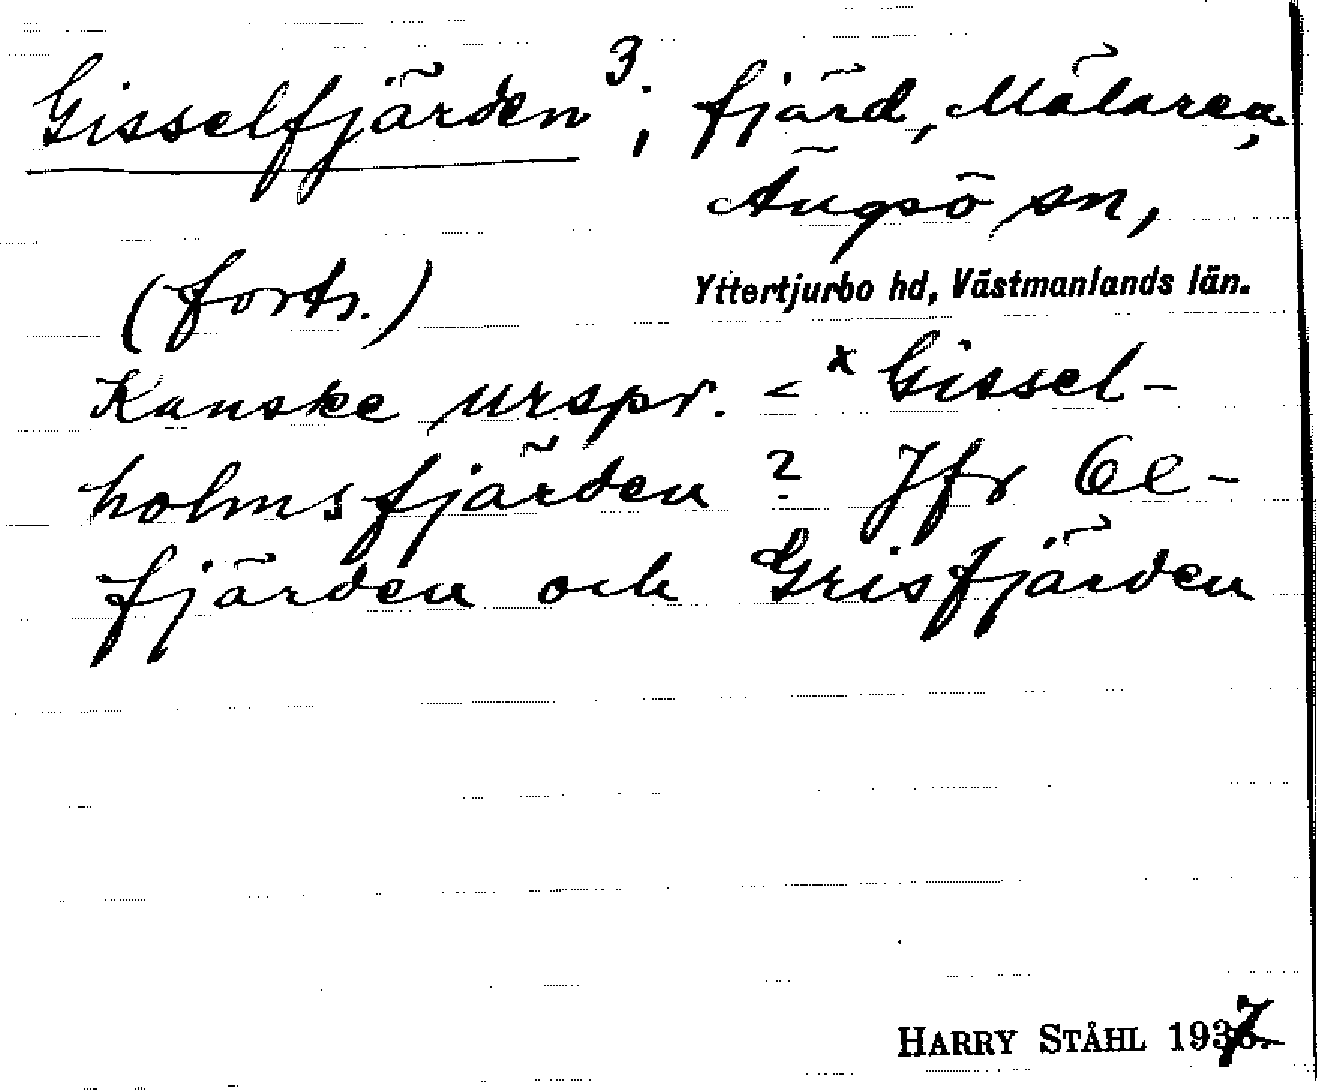 Gisselfjärden 3; fjärd, Mälaren,
Ängsö sn,
(forts.) Yttertjurbo hd, Västmanlands län.
Kanske urspr. < *Gissel-
holmsfjärden? Jfr Öl-
fjärden och Grisfjärden
HARRY STÅHL 1937.